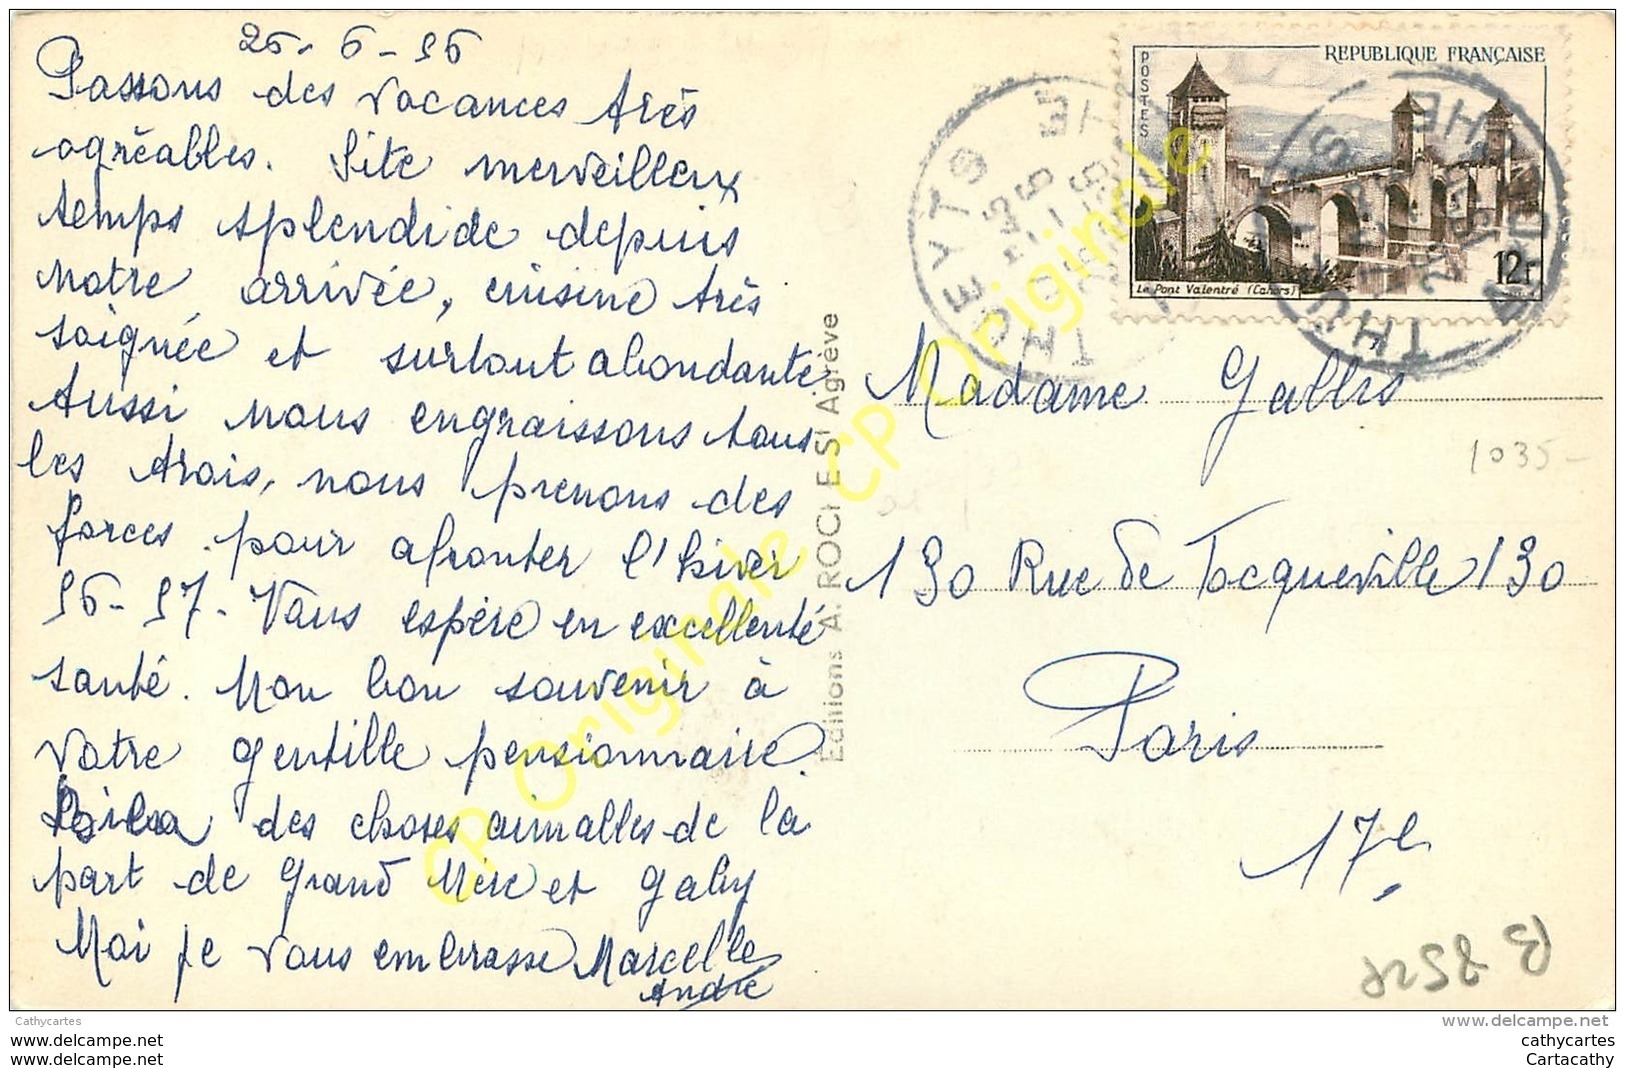 26-6-56
Passons des vacances très
agréables. Site merveilleux
temps splendide depuis
notre arrivée, cuisine très
soignée et surtout abondante
Aussi nous engraissons tous
les trois, nous prenons des
forces pour afronter l'hiver
56-57. Vous espère en excellente
santé. Mon bon souvenir à
votre gentille pensionnaire.
des choses aimables de la
part de Grand Mère et Gaby
Moi je vous embrasse Marcelle
André
Editions A. ROCHE St Agrève
REPUBLIQUE FRANÇAISE
POSTES
12F
Le Pont Valentré (Cahors)
THUEYTS
Madame Gallis
1035-
130 Rue de Tocqueville 130
Paris
17e
B 8528
CP Originale CP Originale CP Originale
Cathycartes
www.delcampe.net
www.delcampe.net
www.delcampe.net
cathycartes
Cartacathy